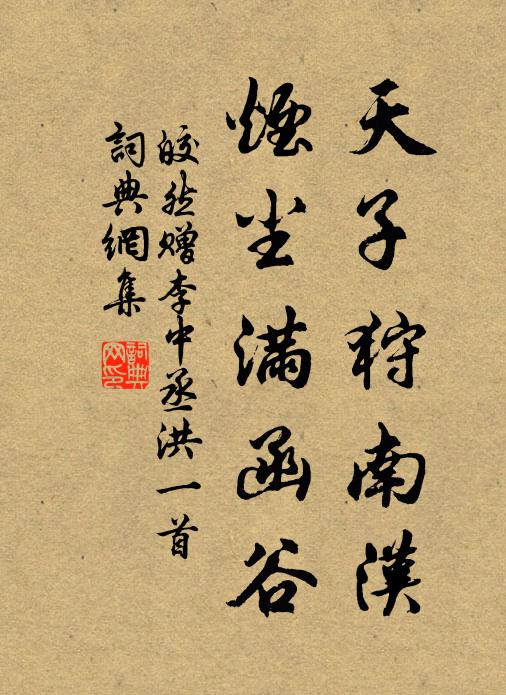 天子狩南漢
煙尘滿函谷
皎然赠李中丞洪一首
詞典網集
詞典网印